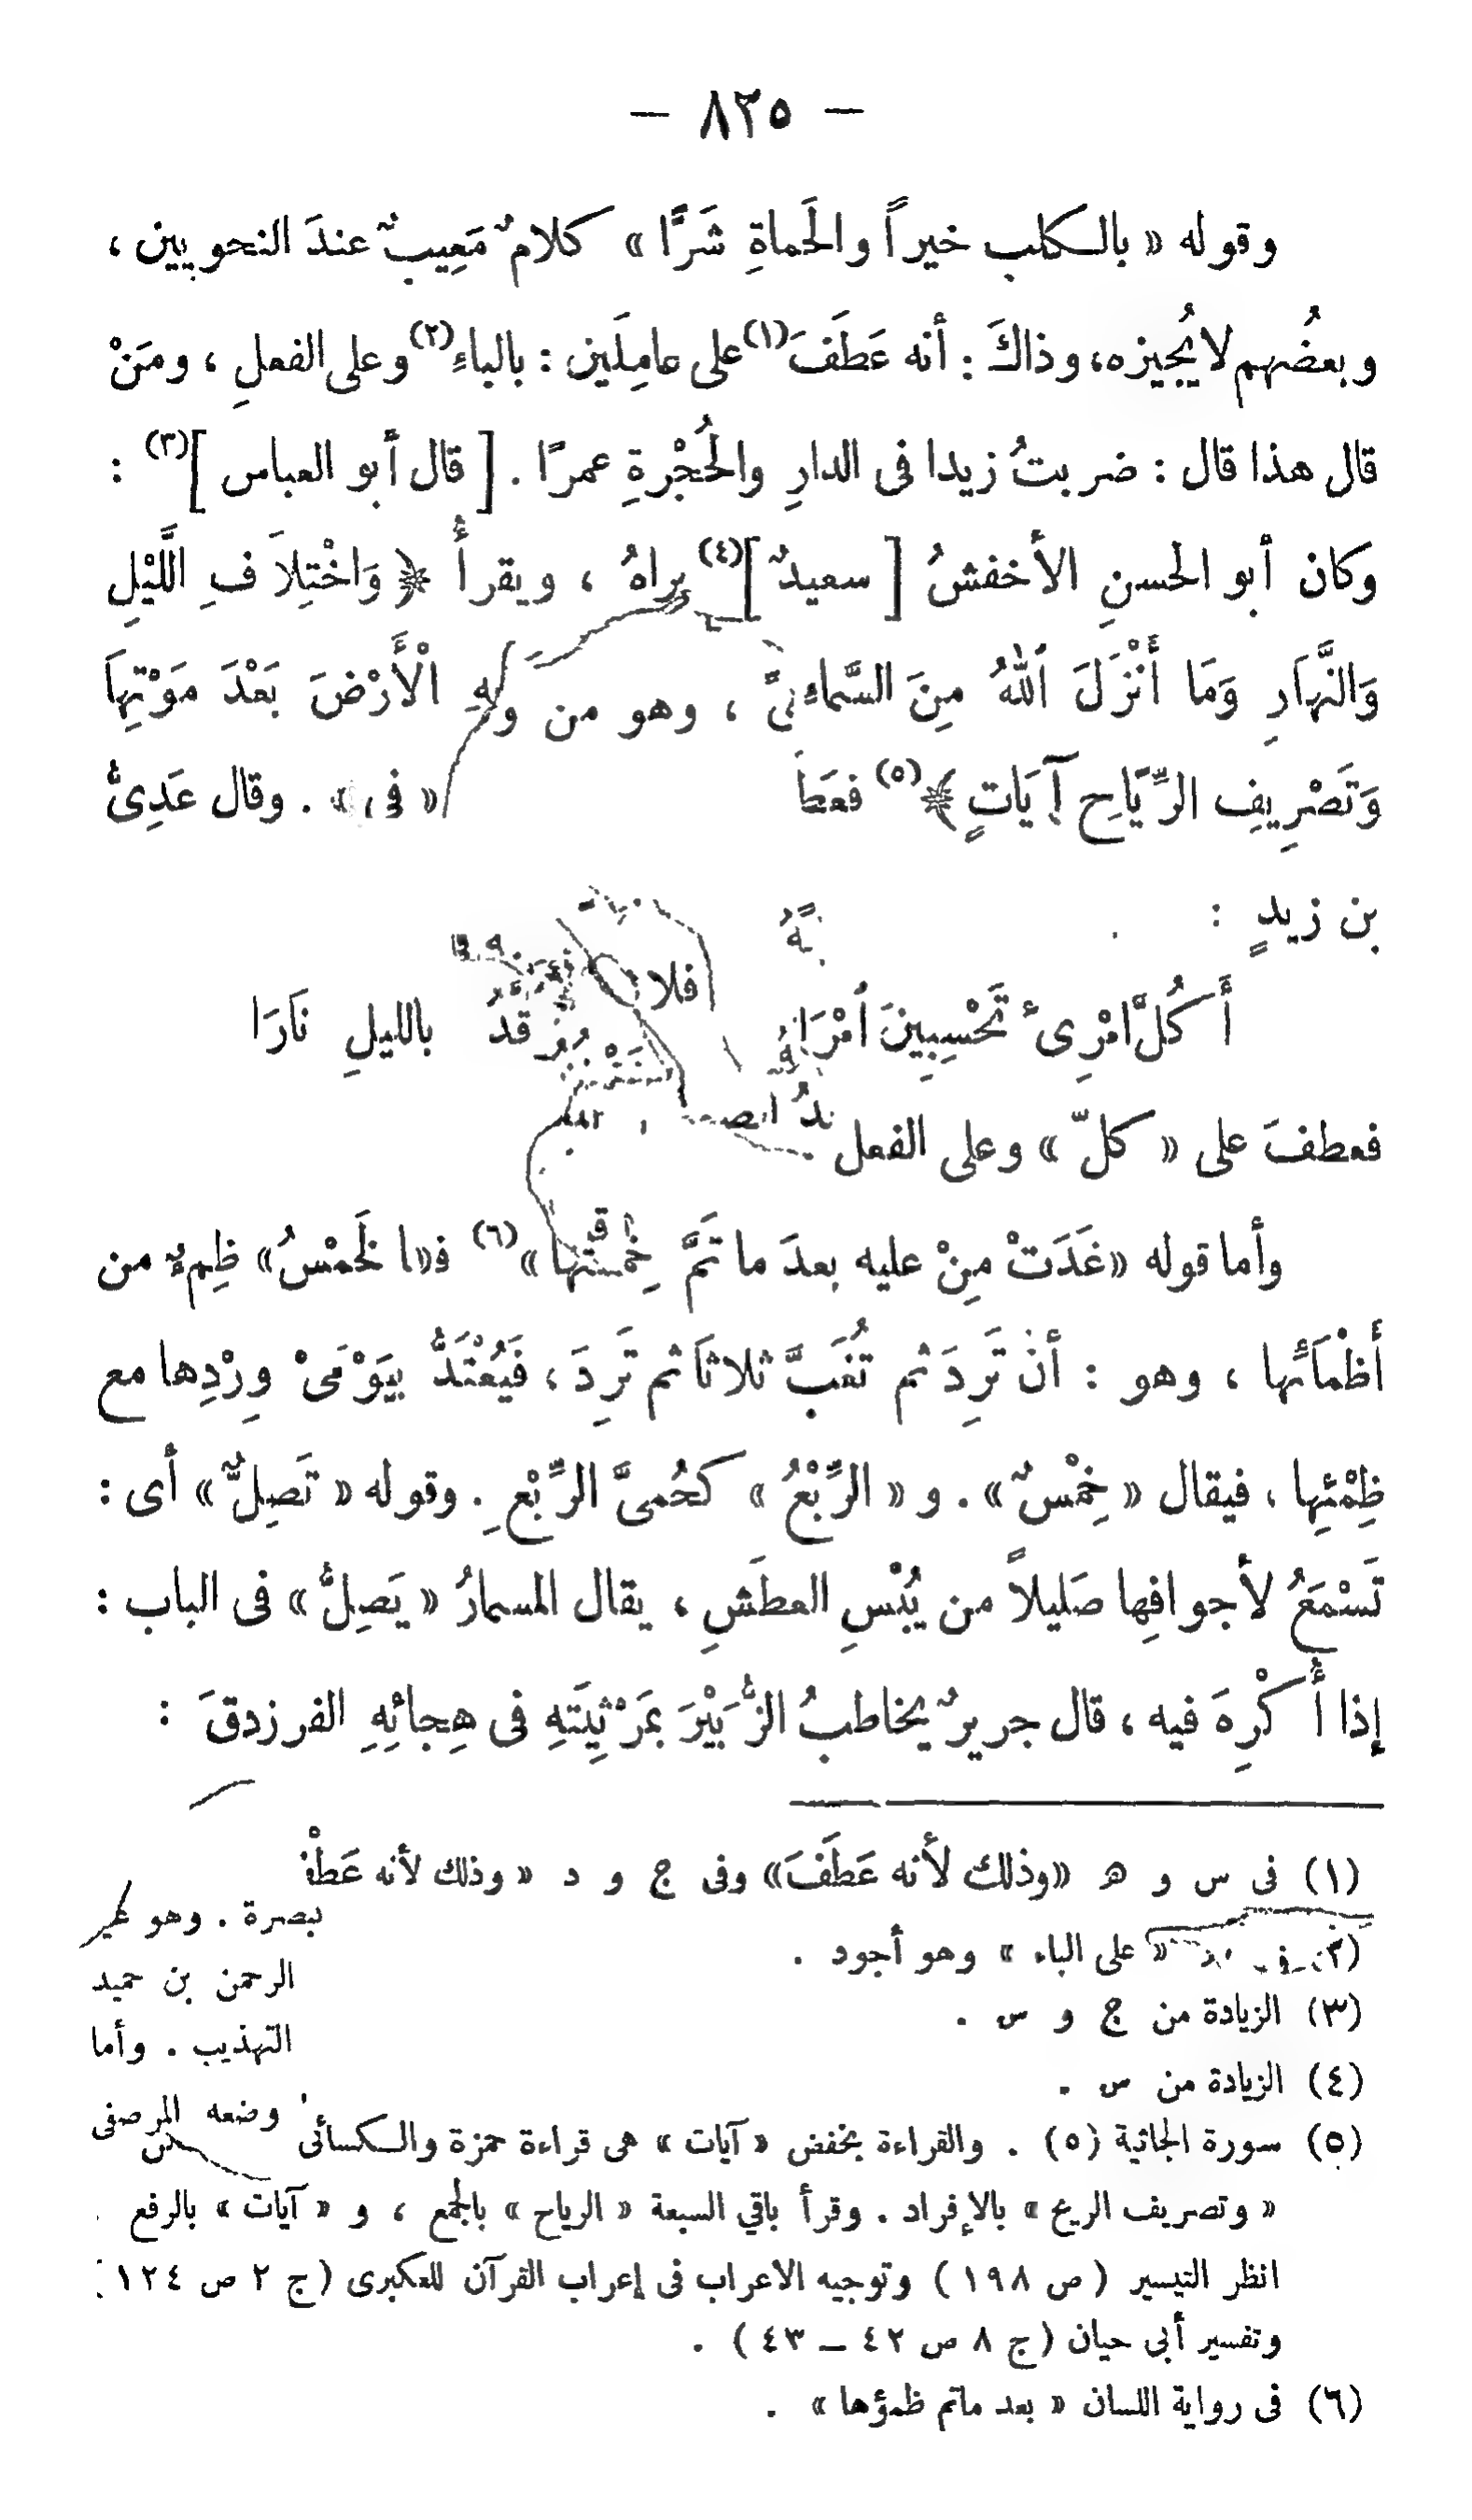 — ٨٢٥ —
وقوله « بالكلب خيراً والحَماةِ شَرًّا » كلامٌ مَعِيبٌ عندَ النحويين ،
وبعضُهم لا يُجيزه، وذاكَ : أنه عَطَفَ (١) على عامِلَين : بالباءِ (٢) وعلى الفعلِ ، ومَنْ
قال هذا قال : ضربتُ زيدا فى الدارِ والحُجْرةِ عمرًا . [ قال أبو العباس ] (٣) :
وكان أبو الحسنِ الأخفشُ [ سعيدٌ ] (٤) يراهُ ، ويقرأُ ﴿ وَاخْتِلاَفِ اللَّيْلِ
وَالنَّهَارِ وَمَا أَنْزَلَ اللهُ مِنَ السَّماءِ ، وهو من الْأَرْضَ بَعْدَ مَوْتِهَا
وَتَصْرِيفِ الرِّيَاحِ آيَاتٍ ﴾ (٥) فعطَ « فى » . وقال عَدِىُّ
بن زيدٍ :
أَكُلَّ امْرِىءٍ تَحْسِبِينَ امْرَأً قَّدُ بالليلِ نَارَا
فعطفَ على « كلّ » وعلى الفعل
وأما قوله « غَدَتْ مِنْ عليه بعدَ ما تَمَّ خِمْسُها » (٦) فـ « الخِمْسُ » ظِمءٌ من
أَظْمَائها ، وهو : أنْ تَرِدَ ثم تُغَبَّ ثلاثاً ثم تَرِدَ ، فَيُعْتَدُّ بِيَوْمَىْ وِرْدِها مع
ظِمْئِها ، فيقال « خِمْسٌ » . و « الرِّبْعُ » كحُمىَّ الرِّبْعِ . وقوله « تَصِلُّ » أى :
تَسْمَعُ لأجوافِها صَليلاً من يُبْسِ العطَشِ ، يقال المسمارُ « يَصِلُّ » فى الباب :
إذا أُكْرِهَ فيه ، قال جريرٌ يخاطبُ الزُّبَيْرَ بمَرْثِيَتِهِ فى هِجائِهِ الفرزدقَ :
(١) فى س و ھ « وذلك لأنه عَطَفَ » وفى ج و د « وذلك لأنه عَطْف
بصرة . وهو
(٢) « على الباء » وهو أجود .
الرحمن بن حميد
(٣) الزيادة من ج و س .
التهذيب . وأما
(٤) الزيادة من س .
وضعه المرصفى
(٥) سورة الجاثية (٥) . والقراءة بخفض « آيات » هى قراءة حمزة والكسائى
« وتصريف الريح » بالإفراد . وقرأ باقي السبعة « الرياح » بالجمع ، و « آيات » بالرفع .
انظر التيسير (ص ١٩٨) وتوجيه الاعراب فى إعراب القرآن للعكبرى (ج ٢ ص ١٢٤
وتفسير أبى حيان (ج ٨ ص ٤٢ — ٤٣) .
(٦) فى رواية اللسان « بعد ماتم ظمؤها » .